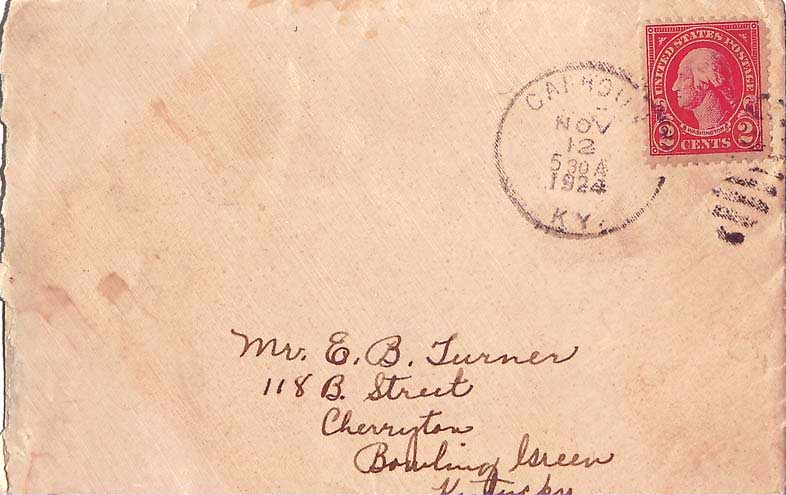 UNITED STATES POSTAGE
WASHINGTON
2 CENTS 2
CALHOUN
NOV
12
5 30 A
1924
KY.
Mr. E. B. Turner
118 B. Street
Cherryton
Bowling Green
Kentucky